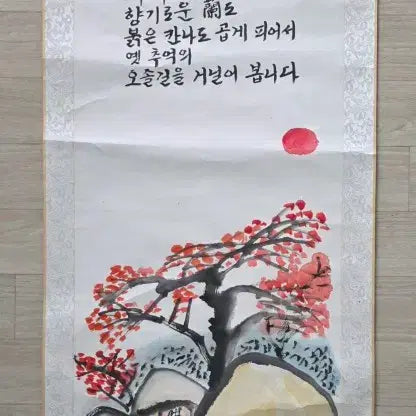 향기로운 蘭도
붉은 칸나도 곱게 피어서
옛 추억의
오솔길을 거닐어 봅니다